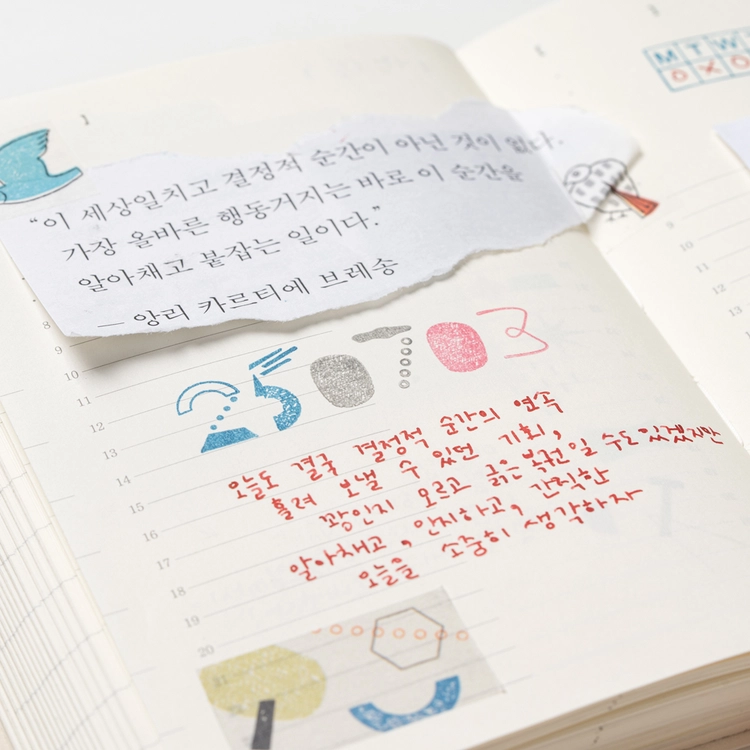 “이 세상일치고 결정적 순간이 아닌 것이 없다.
가장 올바른 행동거지는 바로 이 순간을
알아채고 붙잡는 일이다.”
— 앙리 카르티에 브레송
8
9
10
11
12
13
14
15
16
17
18
19
20
21
250703
오늘도 결국 결정적 순간의 연속
흘려 보낼 수 있던 기회,
꽝인지 모르고 긁은 복권일 수도 있겠지만
알아채고, 인지하고, 간직한
오늘을 소중히 생각하자
M T W
O X O
9
10
11
12